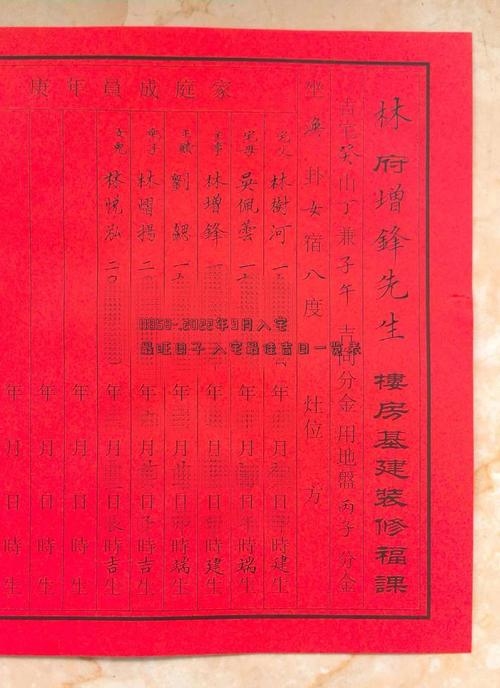 林府增鋒先生 樓房基建裝修福課
吉宅癸山丁兼子午 吉向分金 用地盤丙子分金
坐渙卦女宿八度 灶位 方
家庭成員年庚
宅父 林樹河 一 年 月 日 時建生
宅母 吳佩雲 一 年 月 日 時瑞生
主事 林增鋒 一 年 月 日 時建生
劉 一 年 月 日 時瑞生
林熠揚 二 年 月 日子時吉生
女兒 林悅泓 二〇 年 月 日辰時吉生
年 月 日 時 生
年 月 日 時 生
年 月 日 時 生
2022年9月入宅
最旺日子 入宅最佳吉日一览表